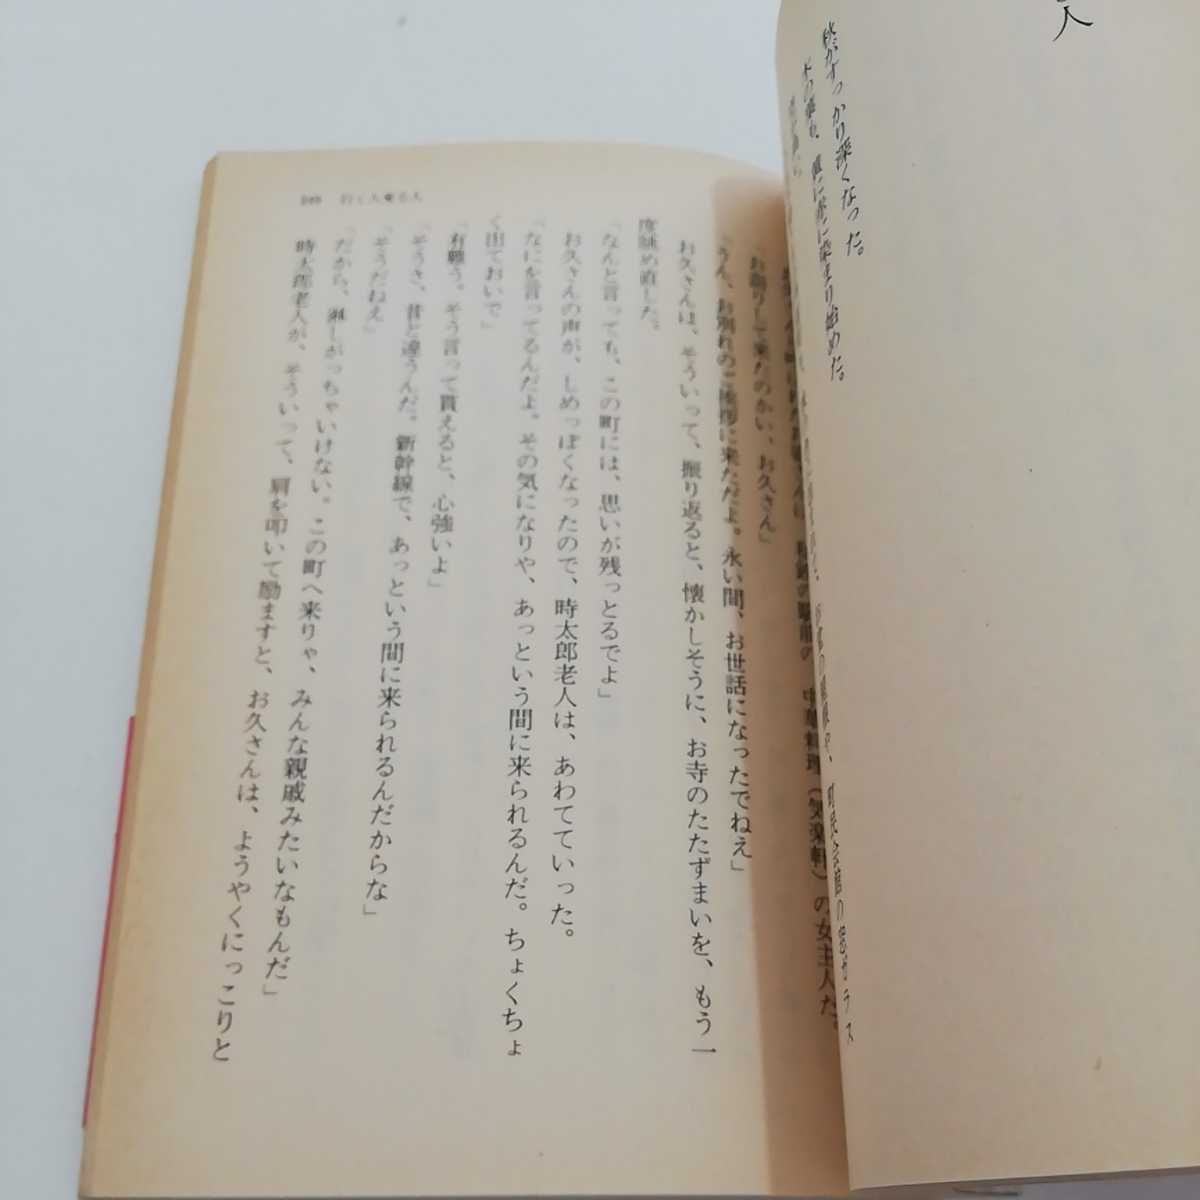 人
秋がすっかり深くなった。
木の葉も、
に染まり始めた。
町民会館の窓ガラス
行く人来る人
中華料理（気楽軒）の女主人だ。
「お参りして来たのかい、お久さん」
「うん、お別れのご挨拶に来ただよ。永い間、お世話になったでねえ」
お久さんは、そういって、振り返ると、懐かしそうに、お寺のたたずまいを、もう一
度眺め直した。
「なんと言っても、この町には、思いが残っとるでよ」
お久さんの声が、しめっぽくなったので、時太郎老人は、あわてていった。
「なにを言ってるんだよ。その気になりや、あっという間に来られるんだ。ちょくちょ
く出ておいで」
「有難う。そう言って貰えると、心強いよ」
「そうさ、昔と違うんだ。新幹線で、あっという間に来られるんだからな」
「そうだねえ」
「だから、淋しがっちゃいけない。この町へ来りゃ、みんな親戚みたいなもんだ」
時太郎老人が、そういって、肩を叩いて励ますと、お久さんは、ようやくにっこりと